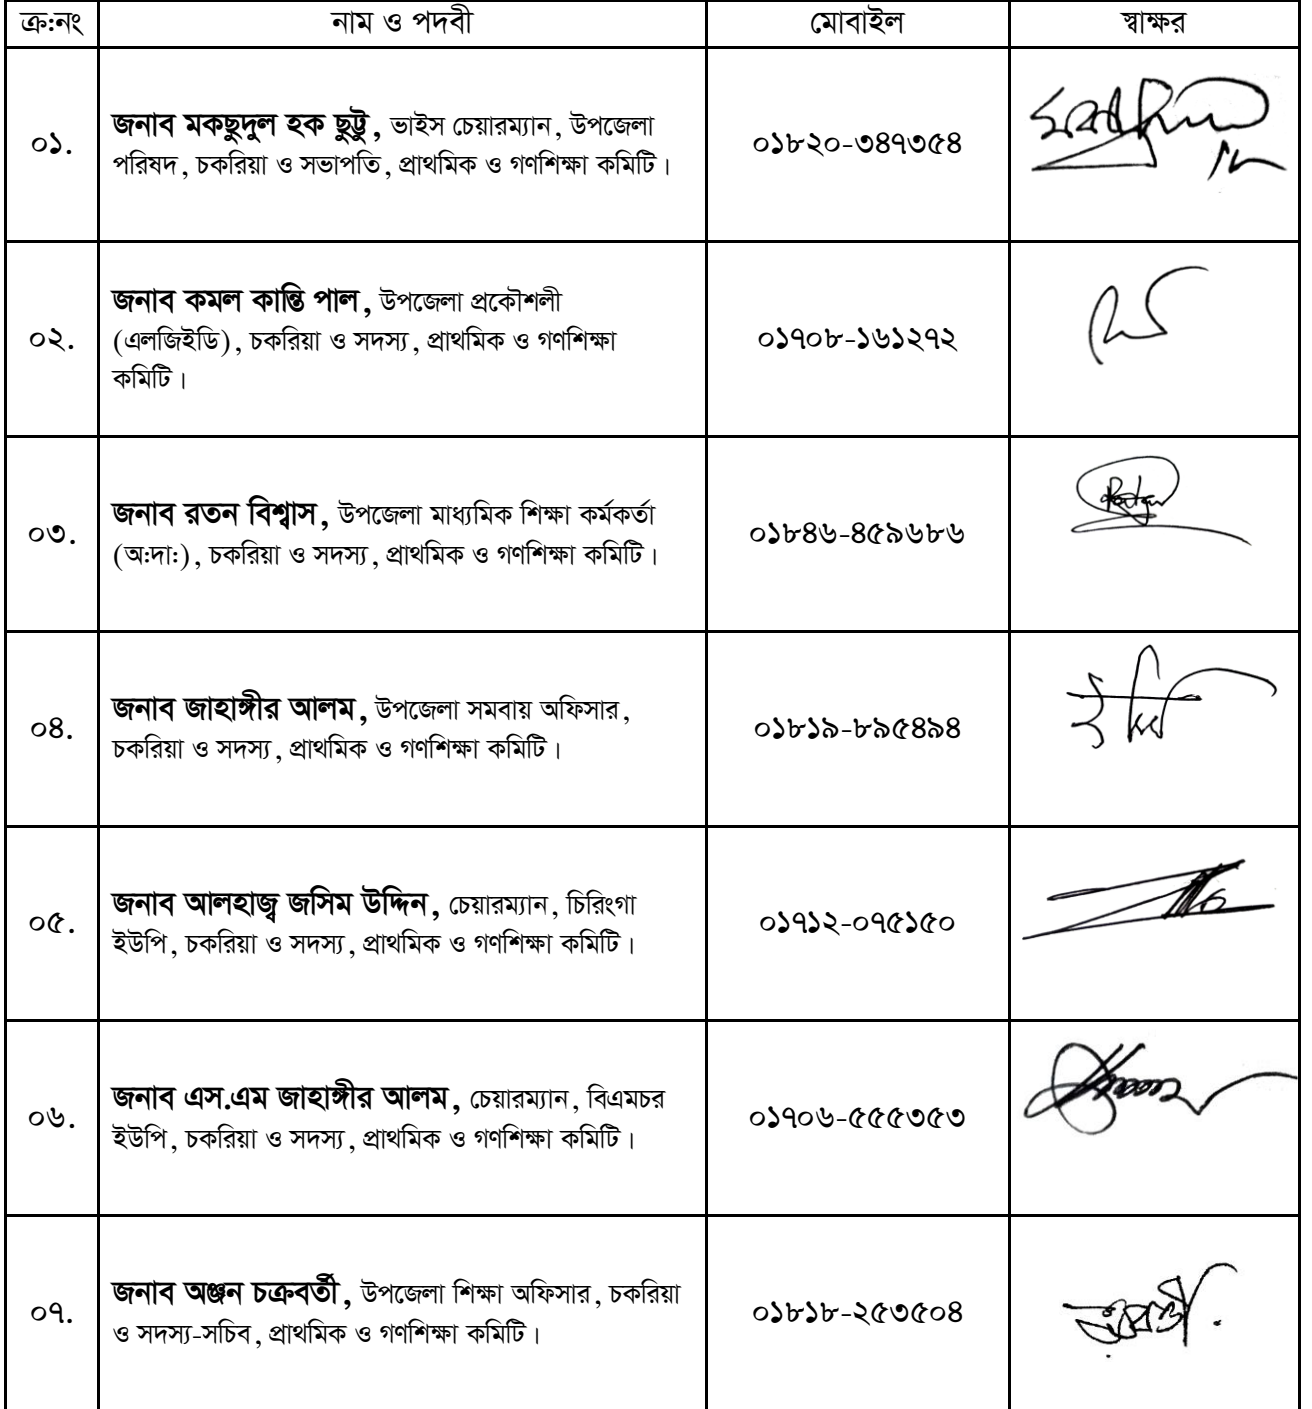 ক্র:নং নাম ও পদবী মোবাইল স্বাক্ষর
০১. জনাব মকছুদুল হক ছুট্টু, ভাইস চেয়ারম্যান, উপজেলা
পরিষদ, চকরিয়া ও সভাপতি, প্রাথমিক ও গণশিক্ষা কমিটি। ০১৮২০-৩৪৭৩৫৪
০২. জনাব কমল কান্তি পাল, উপজেলা প্রকৌশলী
(এলজিইডি), চকরিয়া ও সদস্য, প্রাথমিক ও গণশিক্ষা
কমিটি। ০১৭০৮-১৬১২৭২
০৩. জনাব রতন বিশ্বাস, উপজেলা মাধ্যমিক শিক্ষা কর্মকর্তা
(অ:দা:), চকরিয়া ও সদস্য, প্রাথমিক ও গণশিক্ষা কমিটি। ০১৮৪৬-৪৫৯৬৮৬
০৪. জনাব জাহাঙ্গীর আলম, উপজেলা সমবায় অফিসার,
চকরিয়া ও সদস্য, প্রাথমিক ও গণশিক্ষা কমিটি। ০১৮১৯-৮৯৫৪৯৪
০৫. জনাব আলহাজ্ব জসিম উদ্দিন, চেয়ারম্যান, চিরিংগা
ইউপি, চকরিয়া ও সদস্য, প্রাথমিক ও গণশিক্ষা কমিটি। ০১৭১২-০৭৫১৫০
০৬. জনাব এস.এম জাহাঙ্গীর আলম, চেয়ারম্যান, বিএমচর
ইউপি, চকরিয়া ও সদস্য, প্রাথমিক ও গণশিক্ষা কমিটি। ০১৭০৬-৫৫৫৩৫৩
০৭. জনাব অঞ্জন চক্রবর্তী, উপজেলা শিক্ষা অফিসার, চকরিয়া
ও সদস্য-সচিব, প্রাথমিক ও গণশিক্ষা কমিটি। ০১৮১৮-২৫৩৫০৪